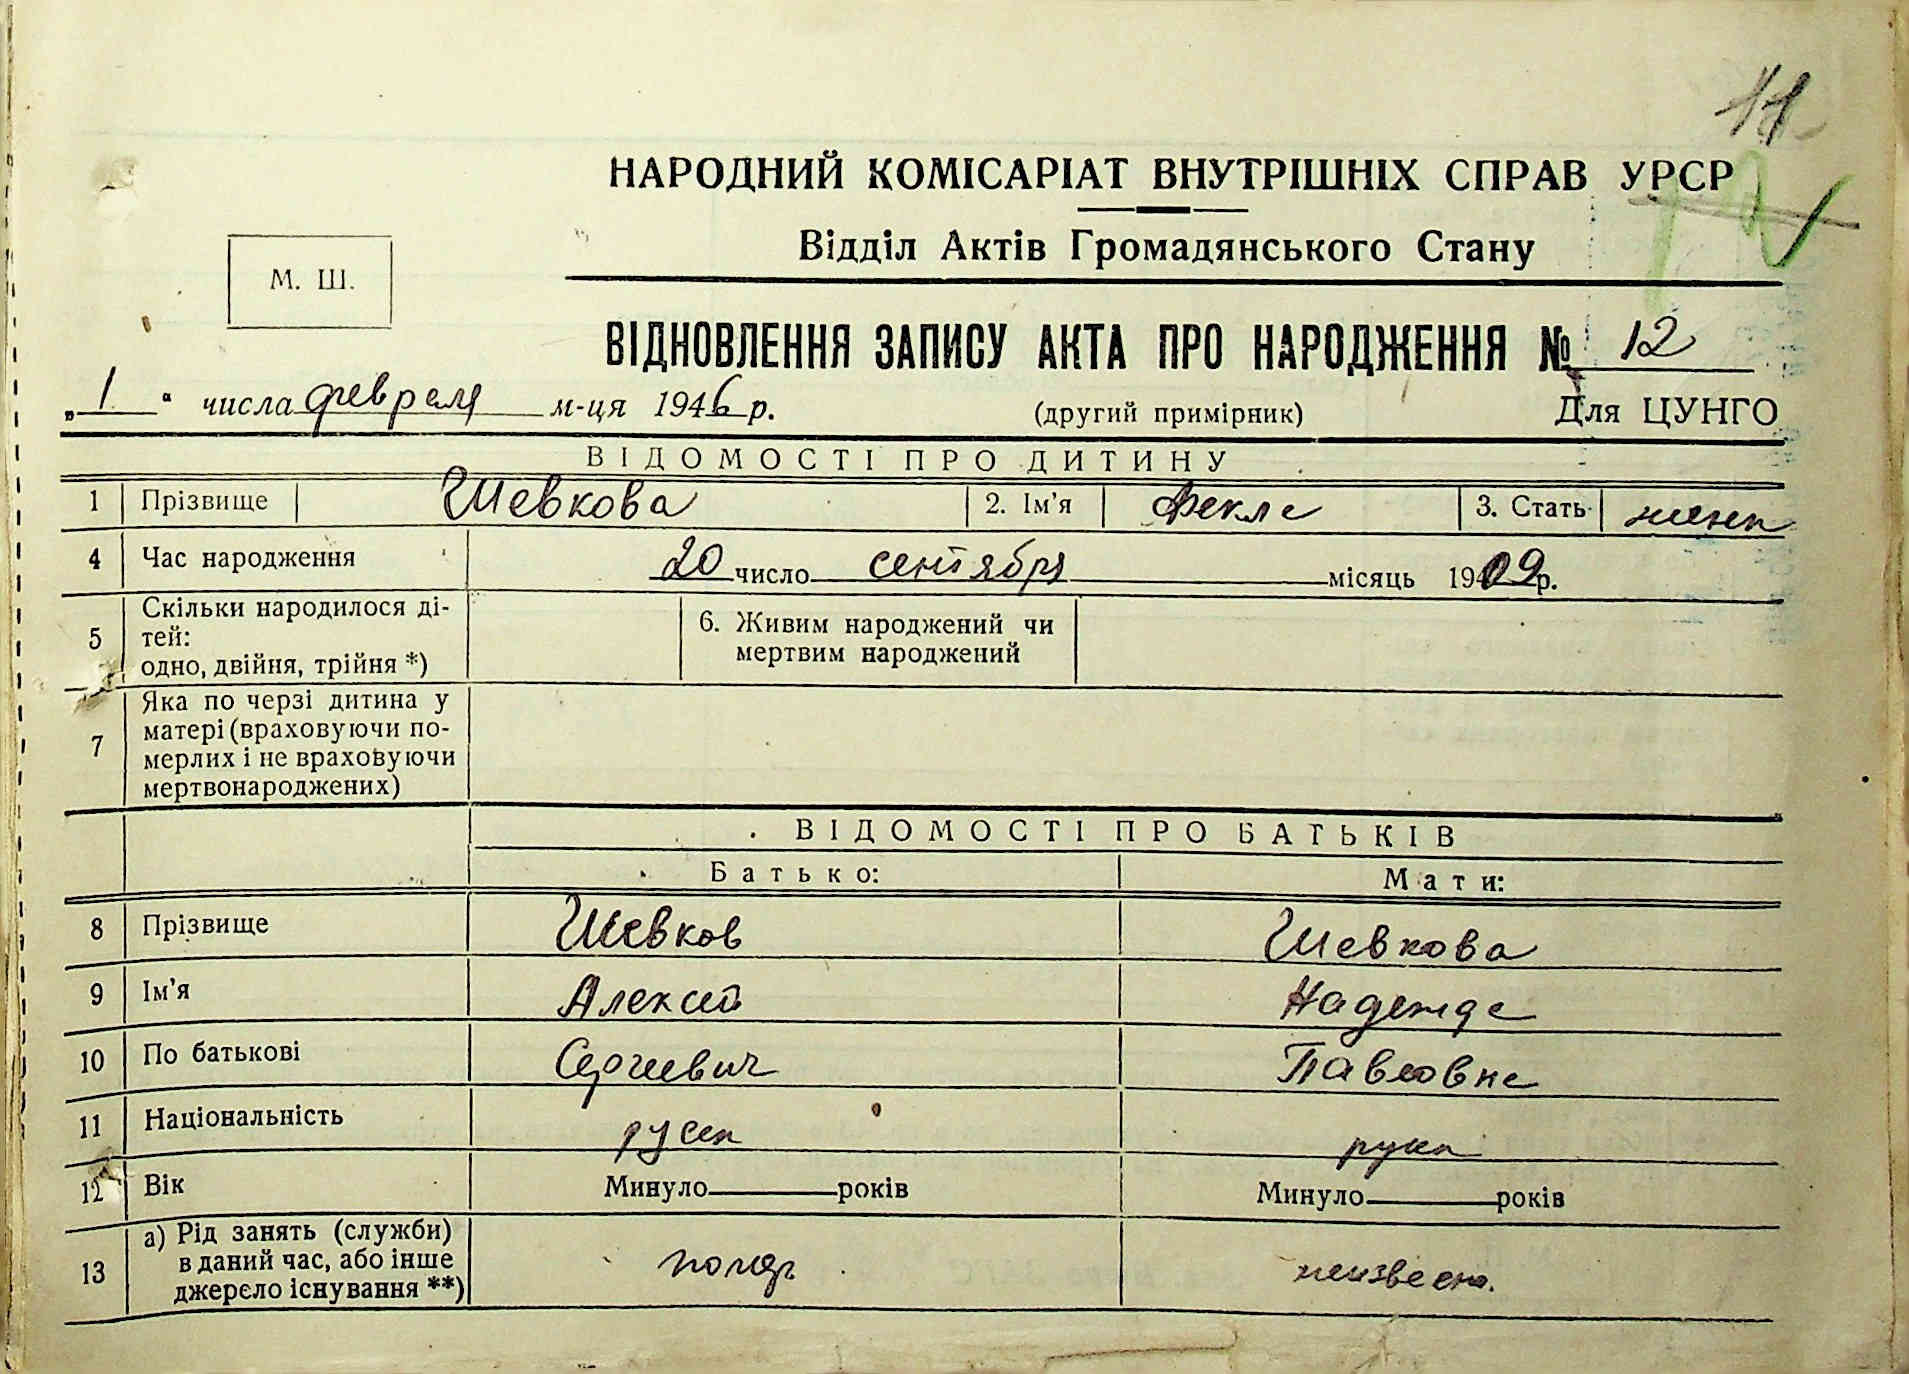 11
НАРОДНИЙ КОМІСАРІАТ ВНУТРІШНІХ СПРАВ УРСР
Відділ Актів Громадянського Стану
М. Ш.
ВІДНОВЛЕННЯ ЗАПИСУ АКТА ПРО НАРОДЖЕННЯ № 12
„1" числа февраля м-ця 1946 р. (другий примірник) Для ЦУНГО
ВІДОМОСТІ ПРО ДИТИНУ
1 Прізвище Шевкова 2. Ім'я Фекла 3. Стать женк
4 Час народження 20 число сентября місяць 1909 р.
5 Скільки народилося ді-
тей:
одно, двійня, трійня *)
6. Живим народжений чи
мертвим народжений
7 Яка по черзі дитина у
матері (враховуючи по-
мерлих і не враховуючи
мертвонароджених)
ВІДОМОСТІ ПРО БАТЬКІВ
Батько: Мати:
8 Прізвище Шевков Шевкова
9 Ім'я Алексей Надежда
10 По батькові Сергеевич Павловна
11 Національність русск
12 Вік Минуло років Минуло років
13 а) Рід занять (служби)
в даний час, або інше
джерело існування **)
неизвесно.